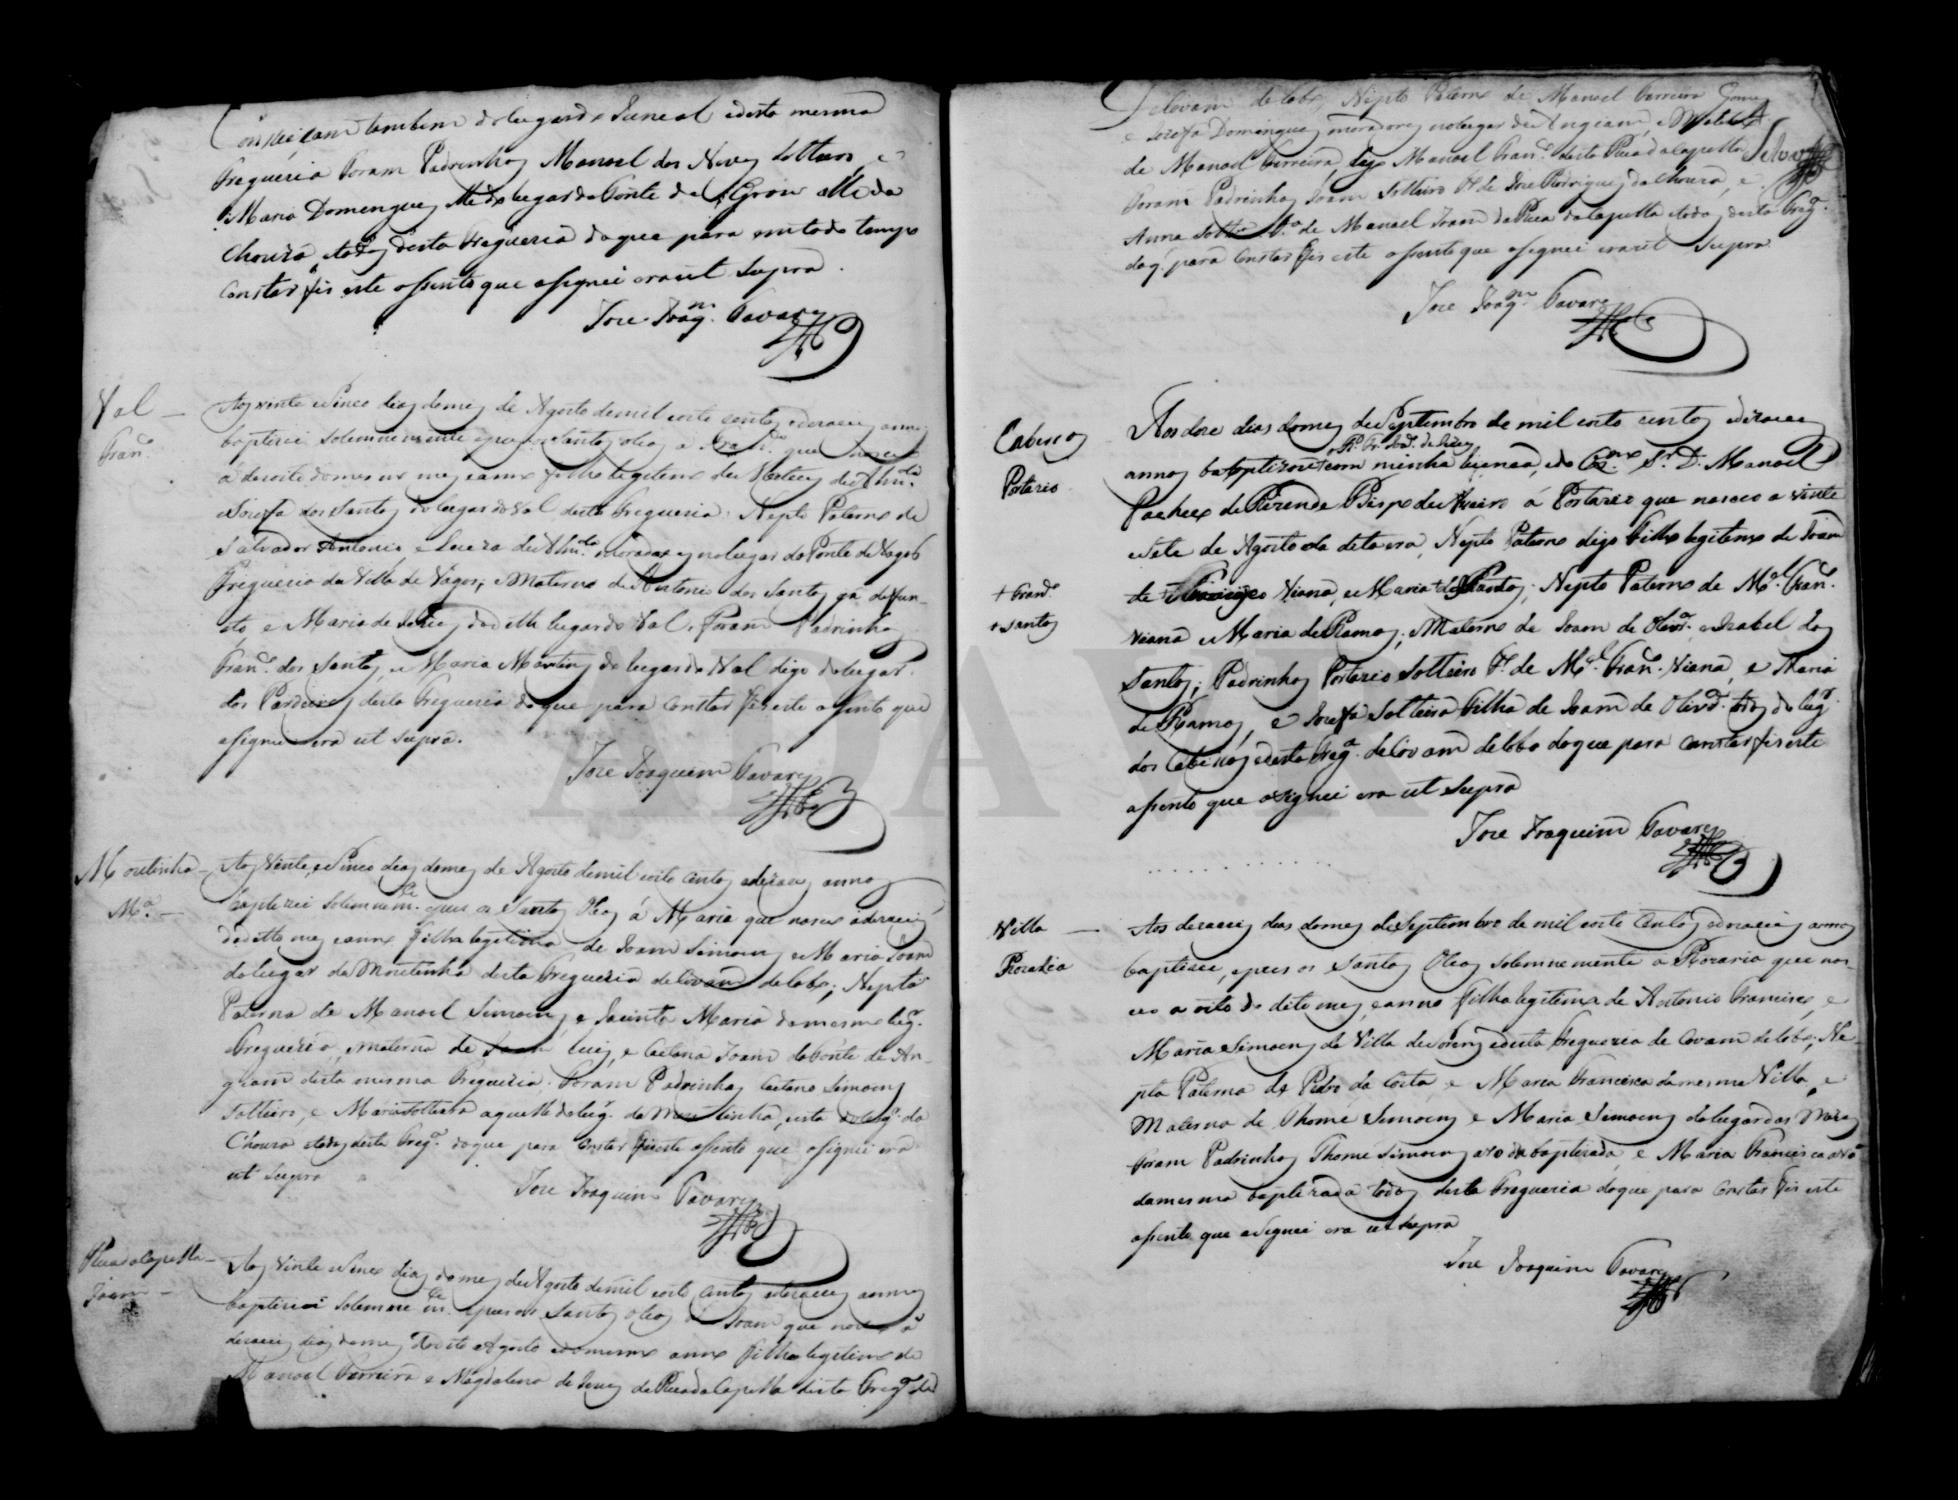 Conceiçam tambem do lugar do Juncal e desta mesma
Freguezia foram Padrinhos Manoel dos Neves solteiro e
Maria Domengues elle do lugar da Ponte de e ella da
Chouza, todos desta Freguezia do que para em todo tempo
constar fis este assento que assignei era ut supra.
Joze Joaqm. Tavares
Val —
Franco.
Aos vinte e sinco dias do mes de Agosto de mil oito centos e dezaceis annos
baptizei solemnemente e pus os Santos oleos a Franco. que nasceo
a dezoito do mesmo mes e anno filho legitimo de de Almda.
e Josefa dos Santos do lugar do Val desta Freguezia; Nepto Paterno de
Salvador Antonio e Luiza de Almda. moradores no lugar da Ponte de Vagos
Freguezia da Villa de Vagos; e Materno de Antonio dos Santos ja defun-
to, e Maria de Jesus do ditto lugar do Val. Foram Padrinhos
Franco. dos Santos, e Maria Martins do lugar do Val digo do lugar
dos Pardeiros desta Freguezia do que para constar fis este assento que
assignei era ut supra.
Joze Joaquim Tavares
Moutinha —
Ma. —
Aos vinte, e sinco dias do mes de Agosto de mil oito centos e dezaceis annos
baptizei solemnemte. e pus os Santos Oleos á Maria que nasceo a dezaceis
do ditto mes e anno filha legitima de Joam Simoens e Maria Joam
do lugar da Moutinha desta Freguezia de Covam de lobo; Nepta
Paterna de Manoel Simoens e Jacinta Maria do mesmo lugr.
Freguezia, materna de Joam Luis, e Caetana Joam da Ponte de An-
giam desta mesma Freguezia. Foram Padrinhos Caetano Simoens
solteiro, e Maria solteira aquelle do lugr. da Moutinha, e esta do lugr. da
Chouza e todos desta Fregа. do que para constar fis este assento que assignei era
ut supra
Joze Joaquim Tavares
Rua da Capella —
Joam —
Aos vinte e sinco dias do mes de Agosto de mil oito centos e dezaceis annos
baptizei solemnemte. e pus os Santos oleos a Joam que nasceo a
dezaceis dias do mes do dito Agosto e do mesmo anno filho legitimo de
Manoel Ferreira e Magdalena de Jesus da Rua da Capella desta Frega. de
Covam de lobo, Nepto Paterno de Manoel Ferreira Gomes
e Josefa Domingues moradores no lugar de Angiam, e Materno
de Manoel Ferreira, digo Manoel Franco. desta Rua da Capella
Foram Padrinhos Joam solteiro Fo. de Joze Rodrigues da Chouza, e
Anna soltra. Fa. de Manoel Joam da Rua da Capella e todos desta Frega.
do q. para constar fis este assento que assignei era ut supra
Joze Joaqm. Tavares
Cabeços
Portazio
Aos doze dias do mes de Septembro de mil oito centos e dezaceis
annos baptizou com minha licença, o Exmo. Sr. D. Manoel
Pacheco de Rezende Bispo de Aveiro á Portazio que nasceo a vinte
e sete de Agosto da dita era, Nepto Paterno digo Filho legitimo de Joam
+ Franco.
+ Santos
de Viana, e Maria dos Santos; Nepto Paterno de Mel. Franco.
Viana e Maria de Ramos; Materno de Joam de Olivra. e Izabel dos
Santos; Padrinhos Portazio solteiro Fo. de Mel. Franco. Viana, e Maria
de Ramos, e Josefa solteira Filha de Joam de Olivra. todos do lugr.
dos Cabeços e desta Frega. de Covam de lobo do que para constar fis este
assento que assignei era ut supra
Joze Joaquim Tavares
Villa —
Rozaria
Aos dezaceis dias do mes de Septembro de mil oito centos e dezaceis annos
baptizei, e pus os Santos Oleos solemnemente a Rozaria que nas-
ceo a oito do dito mes, e anno filha legitima de Antonio Francisco, e
Maria Simoens da Villa de Sorens desta Freguezia de Covam de lobo; Ne-
pta Paterna de Pedro da Costa e Maria Francisca da mesma Villa, e
Materna de Thome Simoens e Maria Simoens do lugar das
Foram Padrinhos Thome Simoens avo da baptizada, e Maria Francisca avó
da mesma baptizada todos desta Freguezia do que para constar fis este
assento que assignei era ut supra
Joze Joaquim Tavares
ADAVR